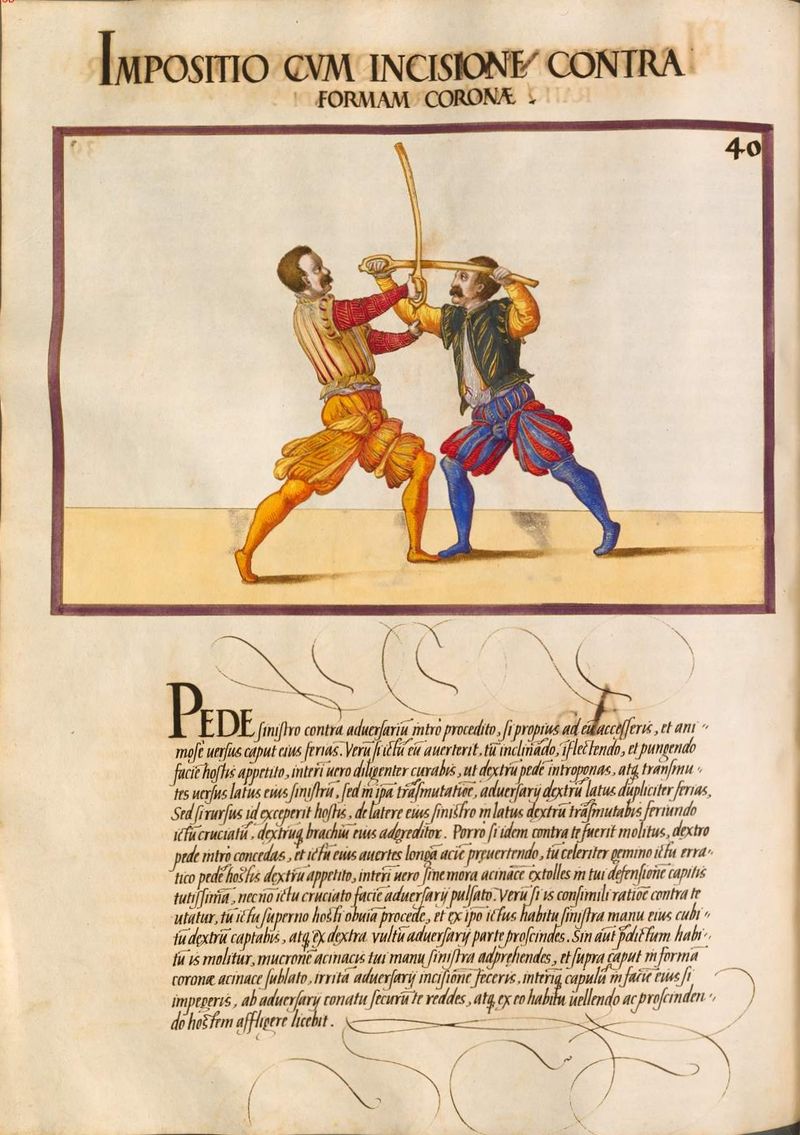 IMPOSITIO CVM INCISIONE CONTRA
FORMAM CORONÆ .
40
PEDE sinistro contra adversariū intrò procedito, si propius ad eū accesseris, et ani-
mosè uersus caput eius ferias. Verū si ictū eū auerterit, tū inclinādo, īflectendo, et pungendo
faciē hostis appetito, interī uero diligenter curabis, ut dextrū pedē introponas, atq̄ transmu-
tes uersus latus eius sinistrū, sed in ipa trāsmutatiōe, adversarÿ dextrū latus dupliciter ferias,
Sed si rursus id exceperit hostis, de latere eius sinistro in latus dextrū trāsmutabis feriundo
ictū cruciatū, dextrūq̄ brachiū eius adgreditor. Porrò si idem contra te fuerit molitus, dextro
pede intrò concedas, et ictū eius auertes longa aciē preuertendo, tū celeriter gemino ictu erra-
tico pedē hostis dextrū appetito, interī uero sine mora acinacē extolles in tui defensionē capitis
tutissimā, necnō ictu cruciato faciē adversarÿ pulsato. Verū si is consimili ratiōe contra te
utatur, tu ictu superno hosti obuia procede, et ex ipo ictus habitu sinistra manu eius cubi-
tū dextrū captabis, atq̄ ex dextra vultū adversarÿ parte proscindes. Sin aūt p̄dictum habi-
tū is molitur, mucronē acinacis tui manu sinistra adprehendes, et supra caput in formā
coronæ acinace sublato, irritā adversarÿ incisionē feceris, interīq̄ capulū in faciē eius si
impegeris, ab adversarÿ conatu securū te reddes, atq̄ ex eo habitu uellendo ac proscinden-
do hostem affligere licebit.